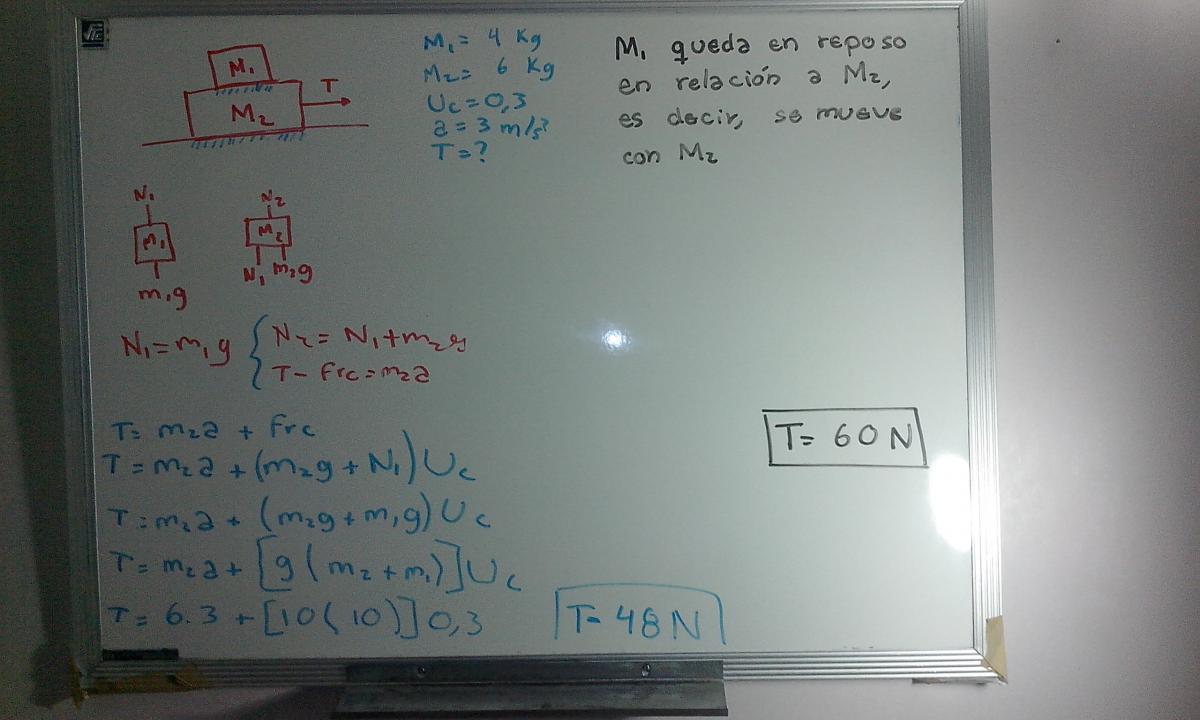 M₁
M₂
T
M₁= 4 Kg
M₂= 6 Kg
Uc=0,3
a=3 m/s²
T=?
M₁ queda en reposo
en relación a M₂,
es decir, se mueve
con M₂
N₁
M₁
m₁g
N₂
M₂
N₁ m₂g
N₁=m₁g
N₂= N₁+m₂g
T- Frc=m₂a
T= m₂a + Frc
T=m₂a+(m₂g+N₁)Uc
T=m₂a+ (m₂g+m₁g)Uc
T= m₂a+[g(m₂+m₁)]Uc
T= 6.3 +[10(10)]0,3
T=48N
T= 60N